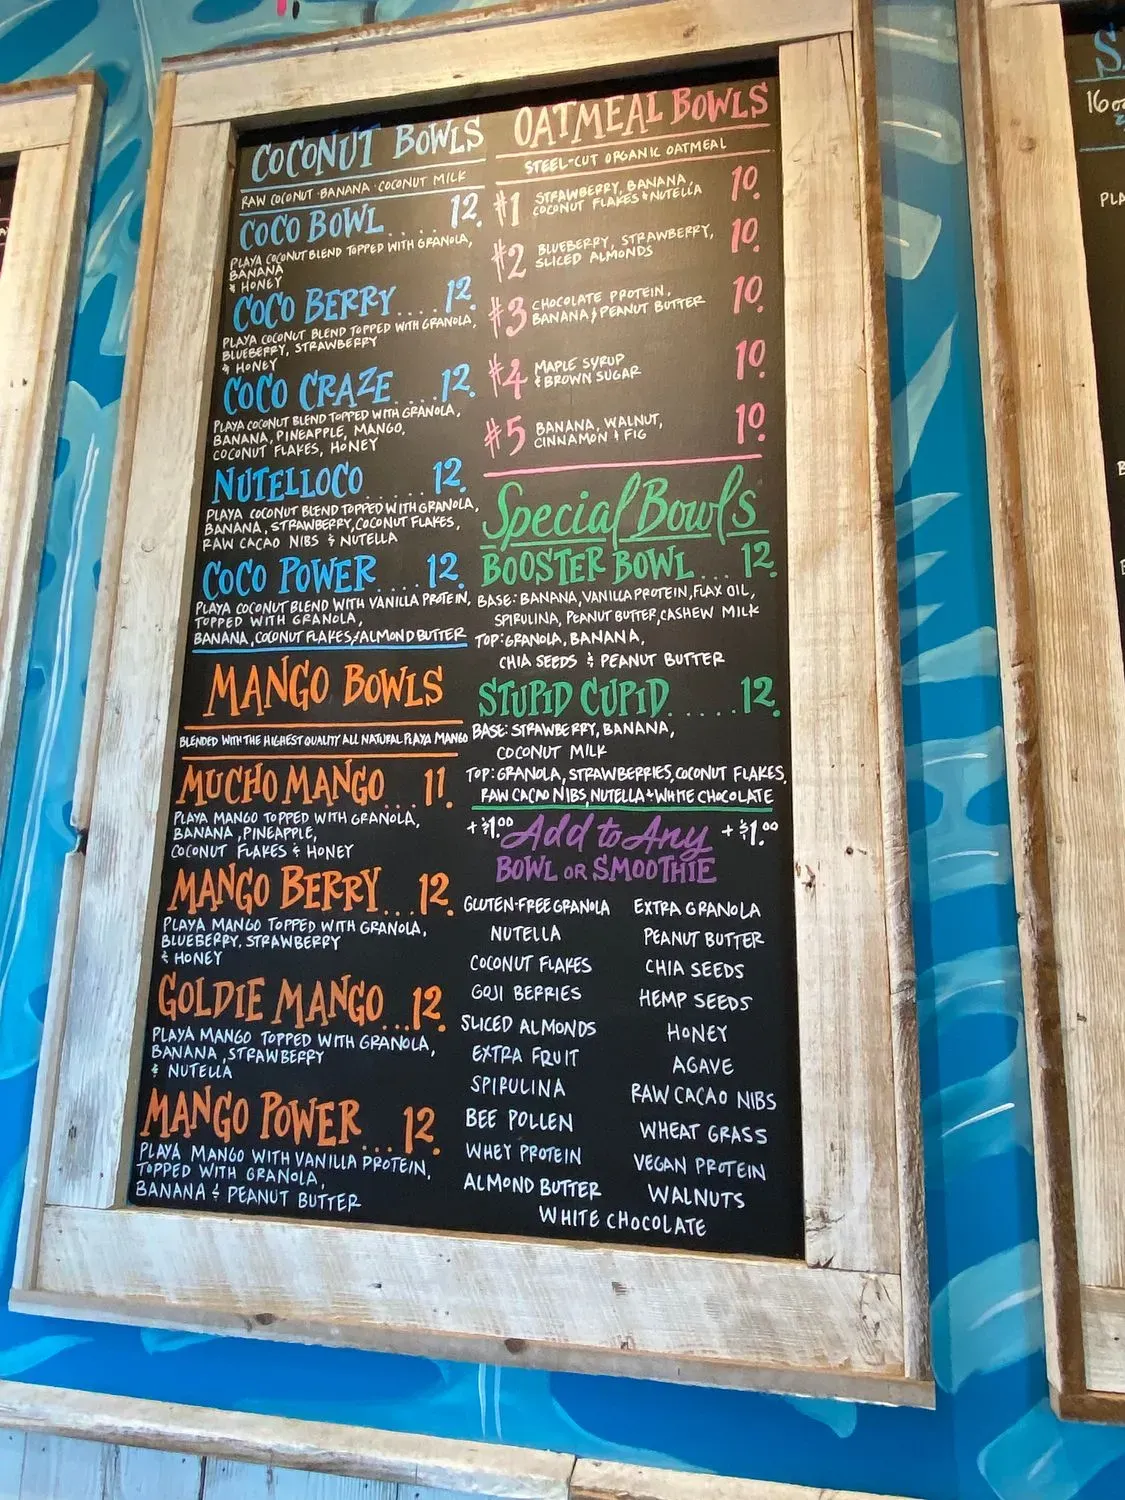 COCONUT BOWLS
RAW COCONUT · BANANA · COCONUT MILK
COCO BOWL.... 12.
PLAYA COCONUT BLEND TOPPED WITH GRANOLA,
BANANA
& HONEY
COCO BERRY... 12.
PLAYA COCONUT BLEND TOPPED WITH GRANOLA,
BLUEBERRY, STRAWBERRY
& HONEY
COCO CRAZE.... 12.
PLAYA COCONUT BLEND TOPPED WITH GRANOLA,
BANANA, PINEAPPLE, MANGO,
COCONUT FLAKES, HONEY
NUTELLOCO...... 12.
PLAYA COCONUT BLEND TOPPED WITH GRANOLA,
BANANA, STRAWBERRY, COCONUT FLAKES,
RAW CACAO NIBS & NUTELLA
COCO POWER.... 12.
PLAYA COCONUT BLEND WITH VANILLA PROTEIN,
TOPPED WITH GRANOLA,
BANANA, COCONUT FLAKES, & ALMOND BUTTER
MANGO BOWLS
BLENDED WITH THE HIGHEST QUALITY ALL NATURAL PLAYA MANGO
MUCHO MANGO... 11.
PLAYA MANGO TOPPED WITH GRANOLA,
BANANA, PINEAPPLE,
COCONUT FLAKES & HONEY
MANGO BERRY... 12.
PLAYA MANGO TOPPED WITH GRANOLA,
BLUEBERRY, STRAWBERRY
& HONEY
GOLDIE MANGO... 12.
PLAYA MANGO TOPPED WITH GRANOLA,
BANANA, STRAWBERRY
& NUTELLA
MANGO POWER... 12.
PLAYA MANGO WITH VANILLA PROTEIN,
TOPPED WITH GRANOLA,
BANANA & PEANUT BUTTER
OATMEAL BOWLS
STEEL-CUT ORGANIC OATMEAL
#1 STRAWBERRY, BANANA, 10.
COCONUT FLAKES & NUTELLA
#2 BLUEBERRY, STRAWBERRY, 10.
SLICED ALMONDS
#3 CHOCOLATE PROTEIN, 10.
BANANA & PEANUT BUTTER
#4 MAPLE SYRUP 10.
& BROWN SUGAR
#5 BANANA, WALNUT, 10.
CINNAMON & FIG
Special Bowls
BOOSTER BOWL... 12.
BASE: BANANA, VANILLA PROTEIN, FLAX OIL,
SPIRULINA, PEANUT BUTTER, CASHEW MILK
TOP: GRANOLA, BANANA,
CHIA SEEDS & PEANUT BUTTER
STUPID CUPID..... 12.
BASE: STRAWBERRY, BANANA,
COCONUT MILK
TOP: GRANOLA, STRAWBERRIES, COCONUT FLAKES,
RAW CACAO NIBS, NUTELLA + WHITE CHOCOLATE
+ $1.00 Add to Any + $1.00
BOWL OR SMOOTHIE
GLUTEN-FREE GRANOLA EXTRA GRANOLA
NUTELLA PEANUT BUTTER
COCONUT FLAKES CHIA SEEDS
GOJI BERRIES HEMP SEEDS
SLICED ALMONDS HONEY
EXTRA FRUIT AGAVE
SPIRULINA RAW CACAO NIBS
BEE POLLEN WHEAT GRASS
WHEY PROTEIN VEGAN PROTEIN
ALMOND BUTTER WALNUTS
WHITE CHOCOLATE